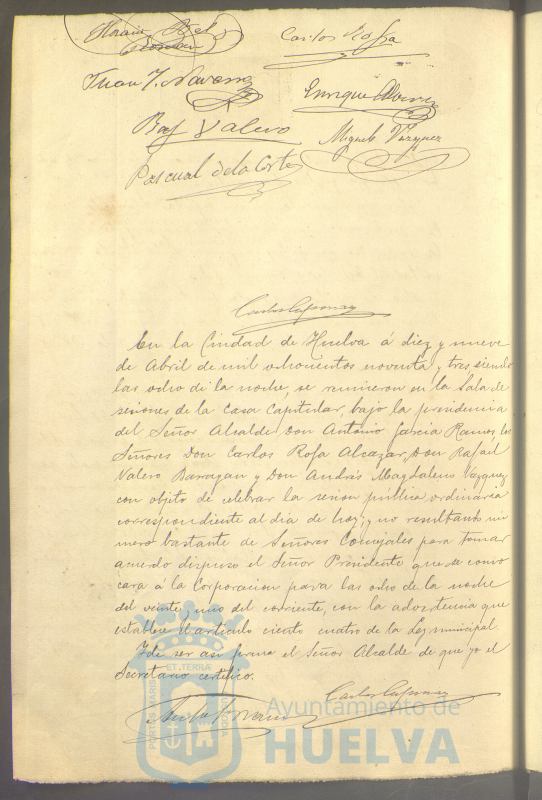 Horacio Bel
Román
Carlos Rofa
Juan J. Navarro
Enrique
Raf Valero
Miguel Vázquez
Pascual de la Corte
Carlos
En la Ciudad de Huelva á diez y nueve
de Abril de mil ochocientos noventa y tres siendo
las ocho de la noche, se reunieron en la Sala de
sesiones de la Casa Capitular, bajo la presidencia
del Señor Alcalde Don Antonio Garcia Ramos, los
Señores Don Carlos Rofa Alcazar, Don Rafael
Valero Barragan y Don Andrés Magdaleno Vazquez
con objeto de celebrar la sesion pública ordinaria
correspondiente al dia de hoy; y no resultando nú
mero bastante de Señores Concejales para tomar
acuerdo dispuso el Señor Presidente que se convo
cara á la Corporacion para las ocho de la noche
del veinte y uno del corriente, con la advertencia que
establece el artículo ciento cuatro de la Ley municipal.
Y de ser así firma el Señor Alcalde de que yo el
Secretario certifico.
Carlos
PORTUS MARIS
ET TERRÆ
CUSTODIA
Ayuntamiento de
HUELVA